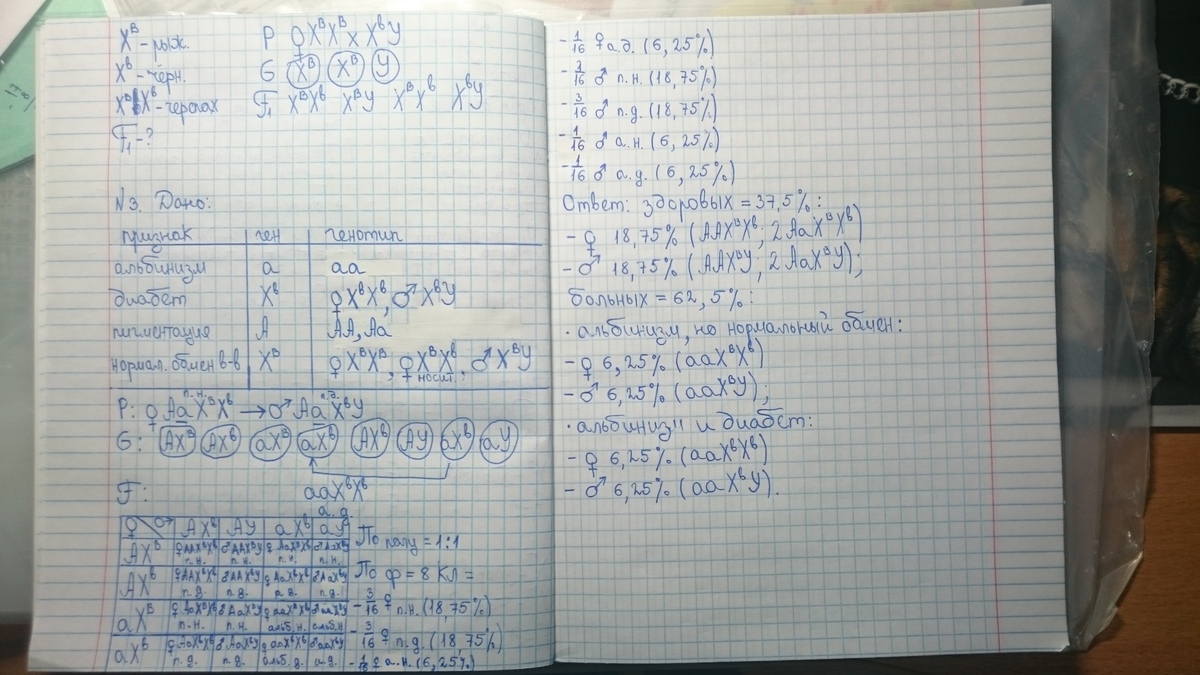 X^B - рыж.
X^b - черн.
X^B X^b - черепах
F₁ - ?
P ♀ X^B X^B x X^b Y
G X^B X^b Y
F₁ X^B X^b X^B Y X^B X^b X^b Y
N3. Дано:
признак ген генотип
альбинизм a aa
диабет X^b ♀ X^b X^b, ♂ X^b Y
пигментация A AA, Aa
нормал. обмен в-в X^B ♀ X^B X^B, ♀ X^B X^b носит., ♂ X^B Y
п.н. п.д.
P: ♀ Aa X^B X^b → ♂ Aa X^b Y
G: AX^B AX^b aX^B aX^b AX^b AY aX^b aY
F: aaX^b X^b
а.д.
♀ ♂ AX^b AY aX^b aY
AX^B ♀AAX^BX^b ♂AAX^BY ♀AaX^BX^b ♂AaX^BY
п.н. п.н. п.н. п.н.
AX^b ♀AAX^bX^b ♂AAX^bY ♀AaX^bX^b ♂AaX^bY
п.д. п.д. п.д. п.д.
aX^B ♀AaX^BX^b ♂AaX^BY ♀aaX^BX^b ♂aaX^BY
п.н. п.н. альб.н. альб.н
aX^b ♀AaX^bX^b ♂AaX^bY ♀aaX^bX^b ♂aaX^bY
п.д. п.д. альб.д. а.д.
По полу = 1:1
По ф = 8 кл =
- 3/16 ♀ п.н. (18,75%)
- 3/16 ♀ п.д. (18,75%)
- 1/16 ♀ а.н. (6,25%)
- 1/16 ♀ а.д. (6,25%)
- 3/16 ♂ п.н. (18,75%)
- 3/16 ♂ п.д. (18,75%)
- 1/16 ♂ а.н. (6,25%)
- 1/16 ♂ а.д. (6,25%)
Ответ: здоровых = 37,5%:
- ♀ 18,75% (AAX^BX^b; 2AaX^BX^b)
- ♂ 18,75% (AAX^BY; 2AaX^BY);
больных = 62,5%:
· альбинизм, но нормальный обмен:
- ♀ 6,25% (aaX^BX^b)
- ♂ 6,25% (aaX^BY);
· альбинизм и диабет:
- ♀ 6,25% (aaX^bX^b)
- ♂ 6,25% (aaX^bY).